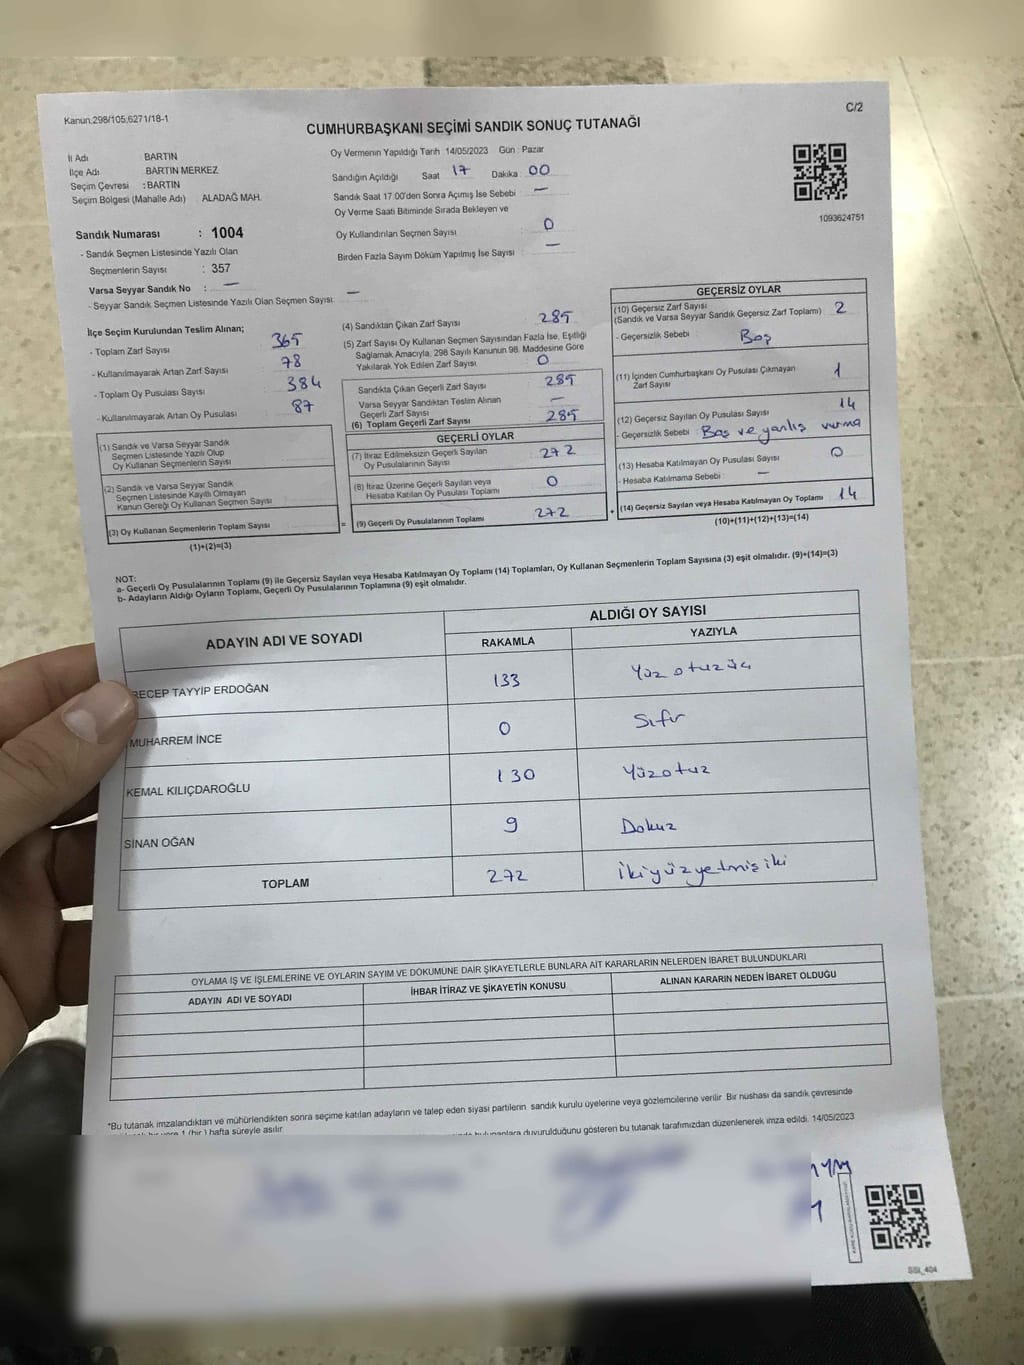 Kanun.298/105;6271/18-1
C/2
CUMHURBAŞKANI SEÇİMİ SANDIK SONUÇ TUTANAĞI
İl Adı BARTIN
İlçe Adı BARTIN MERKEZ
Seçim Çevresi : BARTIN
Seçim Bölgesi (Mahalle Adı) ALADAĞ MAH.
Sandık Numarası : 1004
- Sandık Seçmen Listesinde Yazılı Olan
Seçmenlerin Sayısı : 357
Varsa Seyyar Sandık No : —
- Seyyar Sandık Seçmen Listesinde Yazılı Olan Seçmen Sayısı: —
Oy Vermenin Yapıldığı Tarih :14/05/2023 Gün : Pazar
Sandığın Açıldığı Saat 17 Dakika 00
Sandık Saat 17.00'den Sonra Açımış İse Sebebi : —
Oy Verme Saati Bitiminde Sırada Bekleyen ve
Oy Kullandırılan Seçmen Sayısı : 0
Birden Fazla Sayım Döküm Yapılmış İse Sayısı : —
1093624751
İlçe Seçim Kurulundan Teslim Alınan;
- Toplam Zarf Sayısı 365
- Kullanılmayarak Artan Zarf Sayısı 78
- Toplam Oy Pusulası Sayısı 384
- Kullanılmayarak Artan Oy Pusulası 87
(1) Sandık ve Varsa Seyyar Sandık
Seçmen Listesinde Yazılı Olup
Oy Kullanan Seçmenlerin Sayısı
(2) Sandık ve Varsa Seyyar Sandık
Seçmen Listesinde Kayıtlı Olmayan
Kanun Gereği Oy Kullanan Seçmen Sayısı
(3) Oy Kullanan Seçmenlerin Toplam Sayısı
(1)+(2)=(3)
=
(4) Sandıktan Çıkan Zarf Sayısı 285
(5) Zarf Sayısı Oy Kullanan Seçmen Sayısından Fazla İse, Eşitliği
Sağlamak Amacıyla, 298 Sayılı Kanunun 98. Maddesine Göre
Yakılarak Yok Edilen Zarf Sayısı : 0
Sandıkta Çıkan Geçerli Zarf Sayısı 285
Varsa Seyyar Sandıktan Teslim Alınan
Geçerli Zarf Sayısı —
(6) Toplam Geçerli Zarf Sayısı 285
GEÇERLİ OYLAR
(7) İtiraz Edilmeksizin Geçerli Sayılan
Oy Pusulalarının Sayısı 272
(8) İtiraz Üzerine Geçerli Sayılan veya
Hesaba Katılan Oy Pusulası Toplamı 0
(9) Geçerli Oy Pusulalarının Toplamı 272
+
GEÇERSİZ OYLAR
(10) Geçersiz Zarf Sayısı
(Sandık ve Varsa Seyyar Sandık Geçersiz Zarf Toplamı) 2
- Geçersizlik Sebebi : Boş
(11) İçinden Cumhurbaşkanı Oy Pusulası Çıkmayan
Zarf Sayısı 1
(12) Geçersiz Sayılan Oy Pusulası Sayısı 14
- Geçersizlik Sebebi : Boş ve yanlış vurma
(13) Hesaba Katılmayan Oy Pusulası Sayısı 0
- Hesaba Katılmama Sebebi : —
(14) Geçersiz Sayılan veya Hesaba Katılmayan Oy Toplamı 14
(10)+(11)+(12)+(13)=(14)
NOT:
a- Geçerli Oy Pusulalarının Toplamı (9) ile Geçersiz Sayılan veya Hesaba Katılmayan Oy Toplamı (14) Toplamları, Oy Kullanan Seçmenlerin Toplam Sayısına (3) eşit olmalıdır. (9)+(14)=(3)
b- Adayların Aldığı Oyların Toplamı, Geçerli Oy Pusulalarının Toplamına (9) eşit olmalıdır.
ADAYIN ADI VE SOYADI ALDIĞI OY SAYISI
RAKAMLA YAZIYLA
RECEP TAYYİP ERDOĞAN 133 Yüz otuzüç
MUHARREM İNCE 0 Sıfır
KEMAL KILIÇDAROĞLU 130 Yüzotuz
SİNAN OĞAN 9 Dokuz
TOPLAM 272 İkiyüzyetmişiki
OYLAMA İŞ VE İŞLEMLERİNE VE OYLARIN SAYIM VE DÖKÜMÜNE DAİR ŞİKAYETLERLE BUNLARA AİT KARARLARIN NELERDEN İBARET BULUNDUKLARI
ADAYIN ADI VE SOYADI İHBAR İTİRAZ VE ŞİKAYETİN KONUSU ALINAN KARARIN NEDEN İBARET OLDUĞU
*Bu tutanak imzalandıktan ve mühürlendikten sonra seçime katılan adayların ve talep eden siyasi partilerin sandık kurulu üyelerine veya gözlemcilerine verilir. Bir nushası da sandık çevresinde
1 (bir) hafta süreyle asılır.
duyurulduğunu gösteren bu tutanak tarafımızdan düzenlenerek imza edildi. 14/05/2023